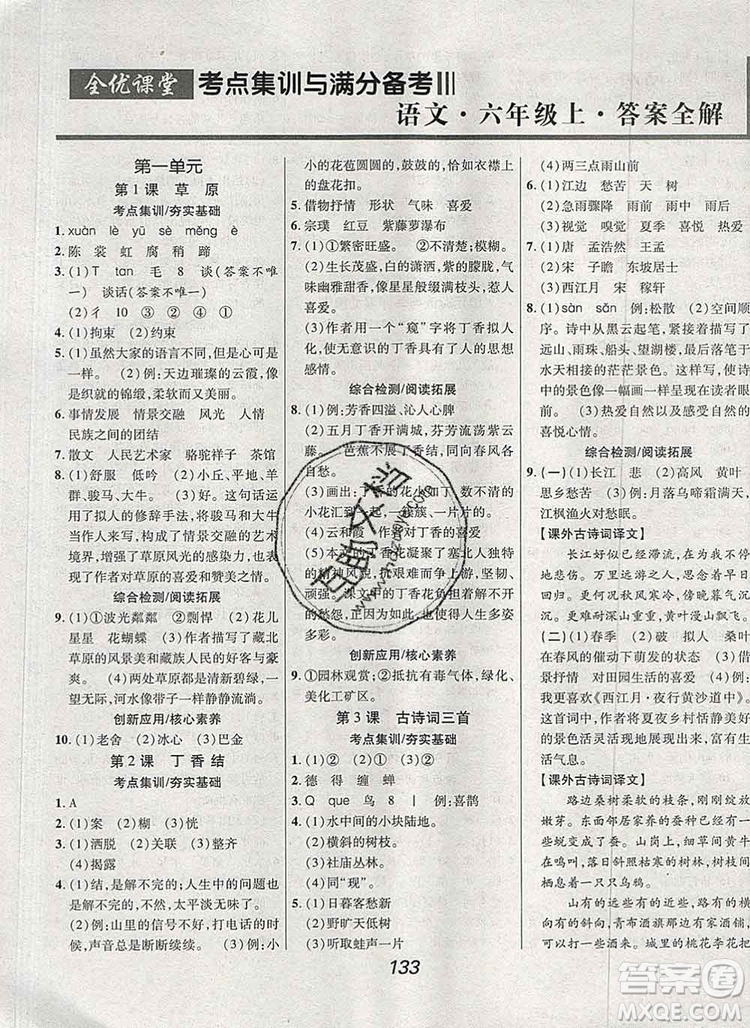 全优课堂 考点集训与满分备考
语文·六年级上·答案全解
第一单元
第1课 草原
考点集训/夯实基础
1. xuàn lè yū sè měng è
2. 陈 裳 虹 腐 稍 蹄
3. (1)T tan 毛 8 谈(答案不唯
一) 谈话(答案不唯一)
(2)彳 10 ③ ② ④ ①
4. (1)拘束 (2)约束
5. (1)虽然大家的语言不同,但是心是
一样。 (2)例:天边璀璨的云霞,像
是织就的锦缎,柔软而又美丽。
6. 事情发展 情景交融 风光 人情
民族之间的团结
7. 散文 人民艺术家 骆驼祥子 茶馆
8. (1)舒服 低吟 (2)小丘、平地、羊
群、骏马、大牛 (3)这句话运用
了拟人的修辞手法,将骏马和大牛
当作人来写,构成了情景交融的艺术
境界,增强了草原风光的感染力,也
写出了作者对草原的喜爱和赞美之情。
综合检测/阅读拓展
9. (1)①波光粼粼 ②剽悍 (2)花儿
星星 花蝴蝶 (3)作者描写了藏北
草原的风景美和藏族人民的好客与豪
爽。 (4)两处草原都是清新碧绿,一
望无际,河水像一条带子静静流淌。
创新应用/核心素养
10. (1)老舍 (2)冰心 (3)巴金
第2课 丁香结
考点集训/夯实基础
1. A
2. (1)案 (2)糊 (3)恍
3. (1)洒脱 (2)关联 (3)整齐
(4)揭露
4. (1)结,是解不完的;人生中的问题也
是解不完的。
(2)例:山里的信号不好,打电话的时
候,声音总是断断续续。 (3)例:
小的花苞圆圆的,鼓鼓的,恰如衣襟上
的盘花扣。
5. 借物抒情 形状 气味 喜爱
6. 宗璞 红豆 紫藤萝瀑布
7. (1)①繁密旺盛。 ②不清楚;模糊。
(2)生长茂盛,白的潇洒,紫的朦胧,气味
幽雅甜香,像星星般闪烁惹人
喜爱。
(3)作者用一个“窥”字将丁香拟人
化,写出了丁香具有人的思想
感情。
综合检测/阅读拓展
8. (1)例:芳香四溢、沁人心脾
(2)五月丁香开满院,芬芳流荡紫云
藤。 芭蕉不展丁香结,同向春风各
自愁。
(3)画出:一样的花 丁 数不清的
小花汇到一起,一簇簇,一片片的。
(4)云和霞 作者对丁香的喜爱
(5)本文的丁香花凝聚了塞北人特
的精神风貌:抗艰难而上游,坚韧、
顽强。课文中的丁香花负担着解不
开的愁怨,正象征着人生多姿
多彩。
创新应用/核心素养
9. ①园林观赏 ②抵抗有害气体,绿化、
美化工矿区。
第3课 古诗词三首
考点集训/夯实基础
1. (1)① (2)②
2. 德 得 缠 蝉
3. Q que 鸟 8 例:喜鹊
4. (1)水中间的小块陆地。
(2)横斜的树枝。
(3)社庙丛林。
(4)同“现”。
5. (1)日暮客愁新
(2)野旷天低树
(3)听取蛙声一片
(4)两三点雨山前
6. (1)江边 愁苦 天 树
(2)急雨骤降 欣喜
(3)视觉 嗅觉 夏天 喜爱 热爱
7. (1)唐 孟浩然 王孟
(2)宋 子瞻 东坡居士
(3)西江月 稼轩
8. (1)sàn sǎn 例:松散 (2)空间顺
序。诗中从黑云起笔,
远山、雨珠、船头、望湖楼,
水天交接的茫茫景色。
(3)热爱自然以及
综合检测/阅读拓展
9. (一)(1)长江 悲 (2)高风 黄叶
(3)例:月落乌啼霜满天,
江枫渔火对愁眠。
【课外古诗词译文】
长江好似已经滞流,
回归。何况秋风寒凉,傍晚暮色可
更难堪高风送秋,黄叶漫山飘飞。
(二)(1)春季 (2)破 拟人 (3)
在春风的催动下萌发的状态
例句:对田园生活的喜爱
我更喜欢《西江月·夜行黄沙道中》
因为作者将夏夜乡村恬静
的景色描写得自然生动,
活气息。
【课外古诗词译文】
路边桑树柔软的枝条,
嫩芽。 山岗上,细草间黄牛
在鸣叫,斜阳照寒林
暮归还能看到乌鸦。
山有的远些有的近些,
有的斜向,青布酒旗那边
沽些酒来。城里的桃花李花
133
答案圈
MXQE.COM